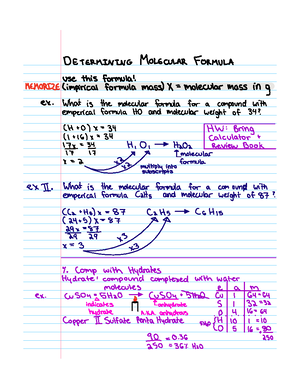 DETERMINING MOLECULAR FORMULA
use this formula!
MEMORIZE (imperical formula mass) X = molecular mass in g
ex. What is the molecular formula for a compound with
emperical formula HO and molecular weight of 34?
(H + O) x = 34
(1 + 16) x = 34
17x = 34
17 17
x = 2
H, O, → H2O2
x2
x2
multiply into
subscripts
↑ molecular
formula
HW: Bring
Calculator +
Review Book
ex II. What is the molecular formula for a compound with
emperical formula C2H5 and molecular weight of 87?
(C2 + H5) x = 87
(24+5) x = 87
29x = 87
29 29
x = 3
C2H5 → C6H15
x3
x3
% Comp with Hydrates
Hydrate: compound complexed with water
molecules
ex. CuSO4 • 5H2O → CuSO4 + 5H2O
indicates
hydrate
↑ anhydrate
A.K.A. anhydrous
Copper II Sulfate Penta Hydrate
e a m
Cu 1 64 = 64
S 1 32 = 32
O 4 16 = 64
H 10 1 = 10
O 5 16 = 80
250
90 = 0.36
250 = 36% H2O